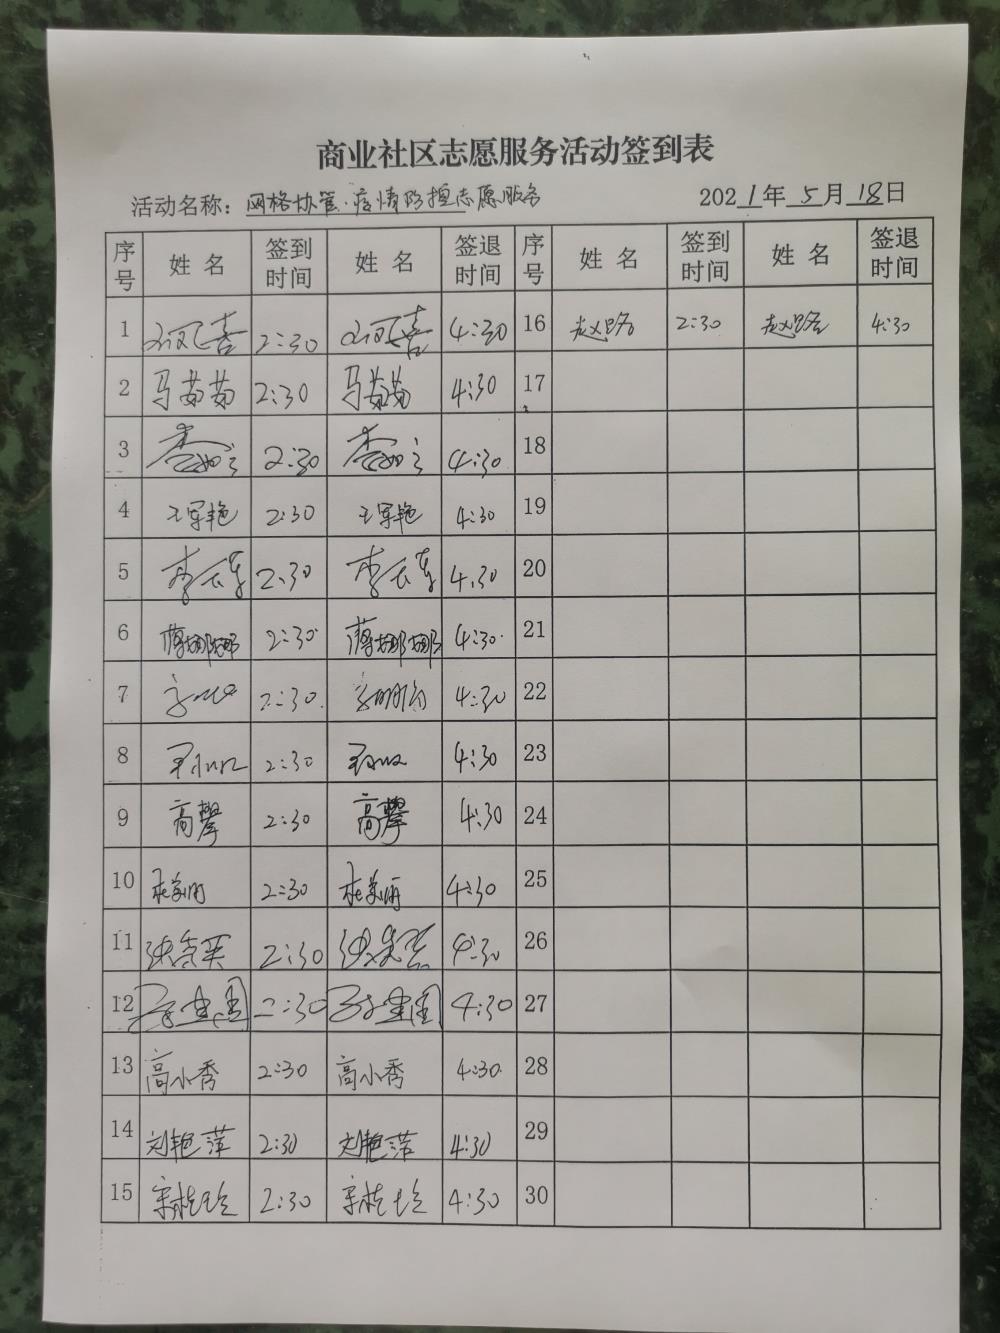 商业社区志愿服务活动签到表
活动名称：网格协管·疫情防控志愿服务 2021年5月18日
序号 姓名 签到时间 姓名 签退时间 序号 姓名 签到时间 姓名 签退时间
1 2:30 4:30 16 赵路 2:30 赵路 4:30
2 马茹茹 2:30 马茹茹 4:30 17
3 2:30 4:30 18
4 王军艳 2:30 王军艳 4:30 19
5 2:30 4:30 20
6 2:30 4:30 21
7 2:30 4:30 22
8 2:30 4:30 23
9 高攀 2:30 高攀 4:30 24
10 杜美丽 2:30 杜美丽 4:30 25
11 2:30 4:30 26
12 2:30 4:30 27
13 高小秀 2:30 高小秀 4:30 28
14 刘艳萍 2:30 刘艳萍 4:30 29
15 2:30 4:30 30